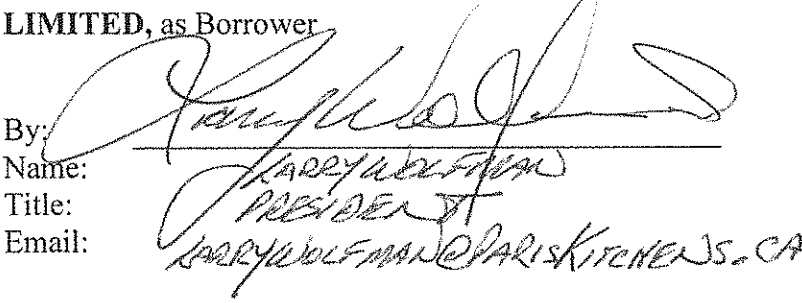 LIMITED, as Borrower
By: Larry Wolfman
Name: LARRY WOLFMAN
Title: PRESIDENT
Email: LARRYWOLFMAN@PARISKITCHENS.CA